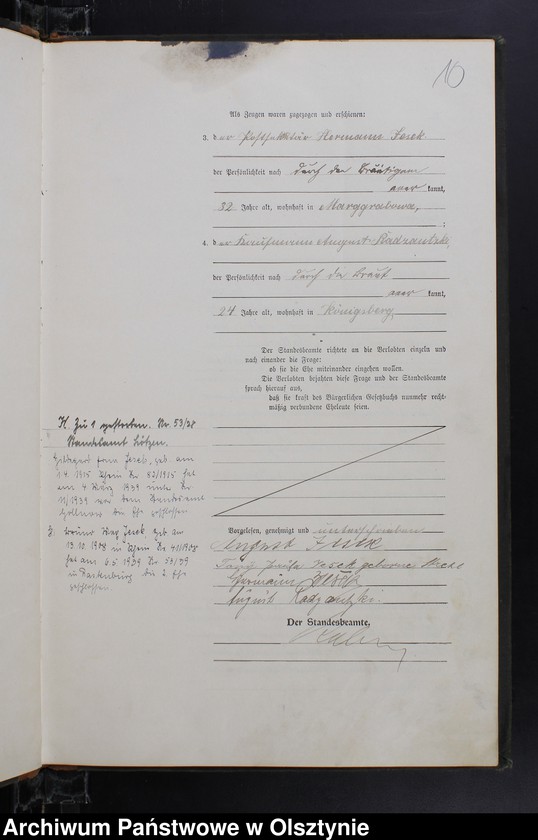 10
Als Zeugen waren zugezogen und erschienen:
3. der Postsekretär Hermann Jesek
der Persönlichkeit nach durch den Bräutigam
aner kannt,
32 Jahre alt, wohnhaft in Marggrabowa,
;
4. der Kaufmann August Radzanitzki
der Persönlichkeit nach durch die Braut
aner kannt,
24 Jahre alt, wohnhaft in Königsberg.
Der Standesbeamte richtete an die Verlobten einzeln und
nach einander die Frage:
ob sie die Ehe miteinander eingehen wollen.
Die Verlobten bejahten diese Frage und der Standesbeamte
sprach hierauf aus,
daß sie kraft des Bürgerlichen Gesetzbuchs nunmehr recht-
mäßig verbundene Eheleute seien.
H. Zu 1 gestorben. Nr. 53/38
Standesamt Lötzen.
Jesek, geb. am
4. 1915 Nr 82/1915 hat
am 4. März 1939 unter Nr
11/1939 vor dem Standesamt
Gollnow die Ehe geschlossen
2. Bruno Max Jesek, geb. am
13.10.1908 in Nr 41/1908
hat am 6.5.1939 Nr 59/39
in die Ehe
geschlossen
Vorgelesen, genehmigt und unterschrieben
August Jesek
Jesek geborene
Hermann Jesek
August Radzanitzki.
Der Standesbeamte,
Archiwum Państwowe w Olsztynie